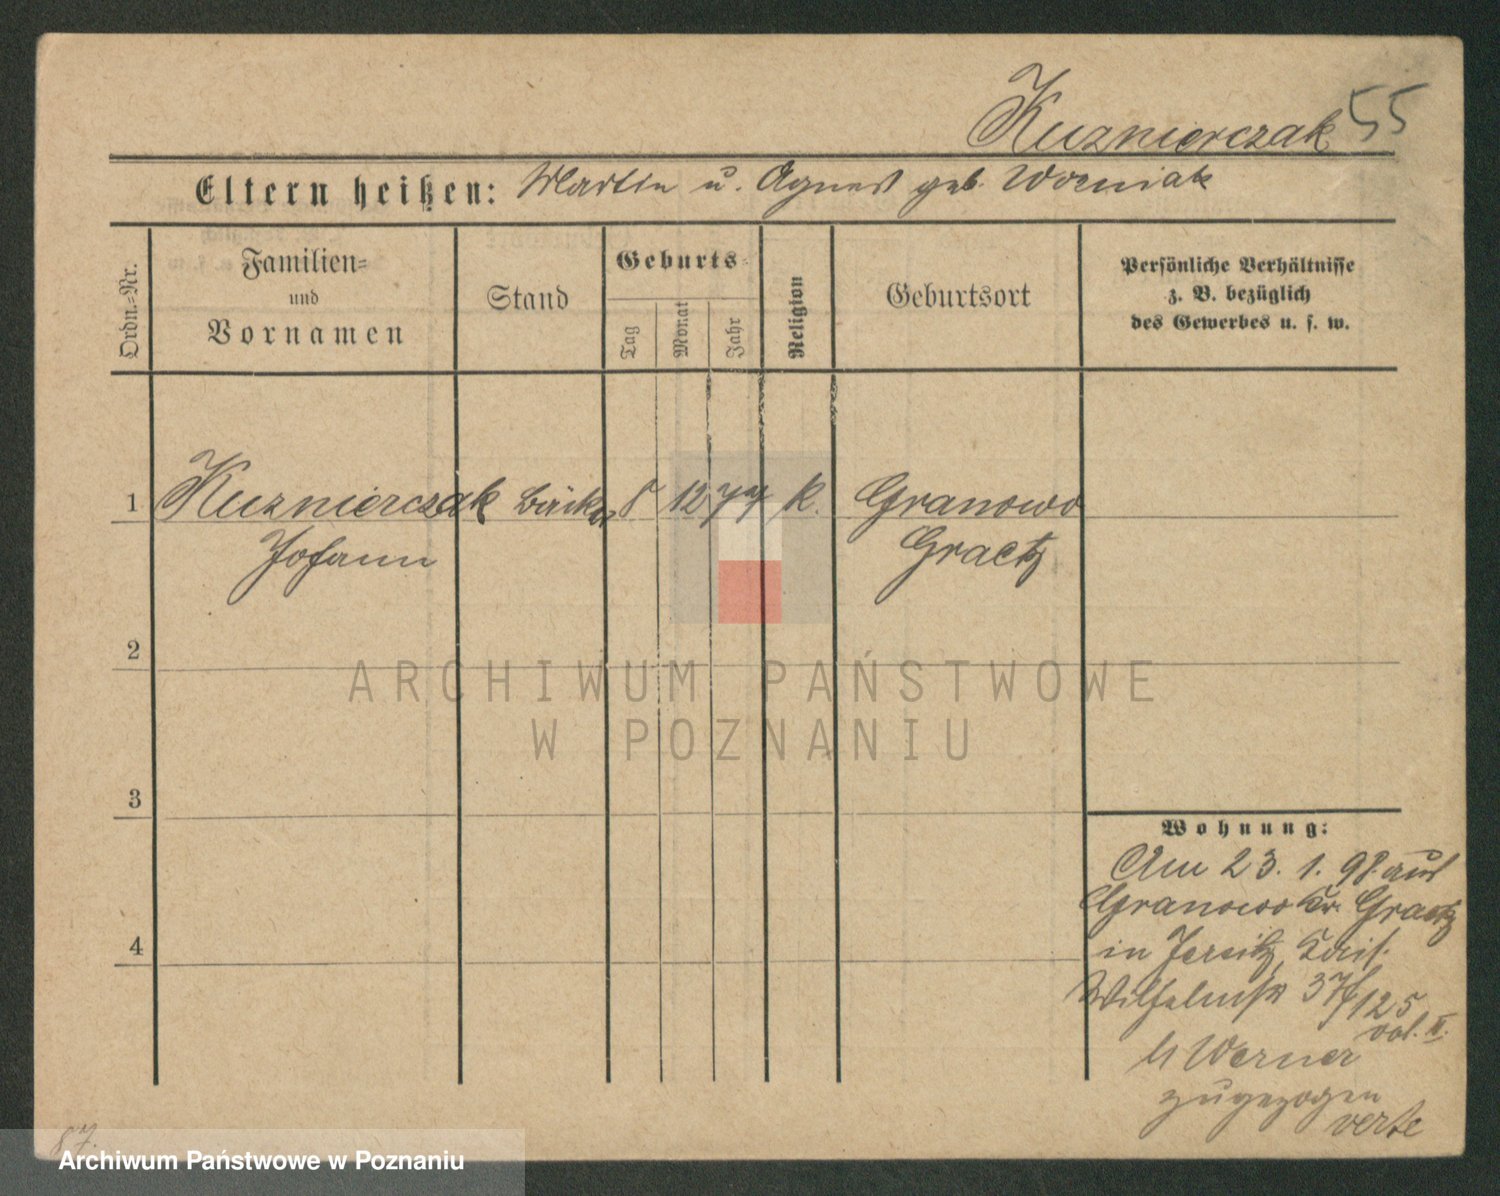 Kuznierczak 55
Eltern heißen: Martin u. Agnes geb. Woźniak
Ordn.-Nr.
Familien-
und
Vornamen
Stand
Geburts-
Tag
Monat
Jahr
Religion
Geburtsort
Persönliche Verhältnisse
z. B. bezüglich
des Gewerbes u. s. w.
1 Kuznierczak Bäcker 8 12 77 k. Granowo
Johann Graetz
2
ARCHIWUM PAŃSTWOWE
W POZNANIU
3
Wohnung:
Am 23. 1. 98 aus
Granowo Kr. Graetz
4
in Jersitz, Kais.
Wilhelmstr 37/125
vol. II.
b Werner
zugezogen
verte
87.
Archiwum Państwowe w Poznaniu